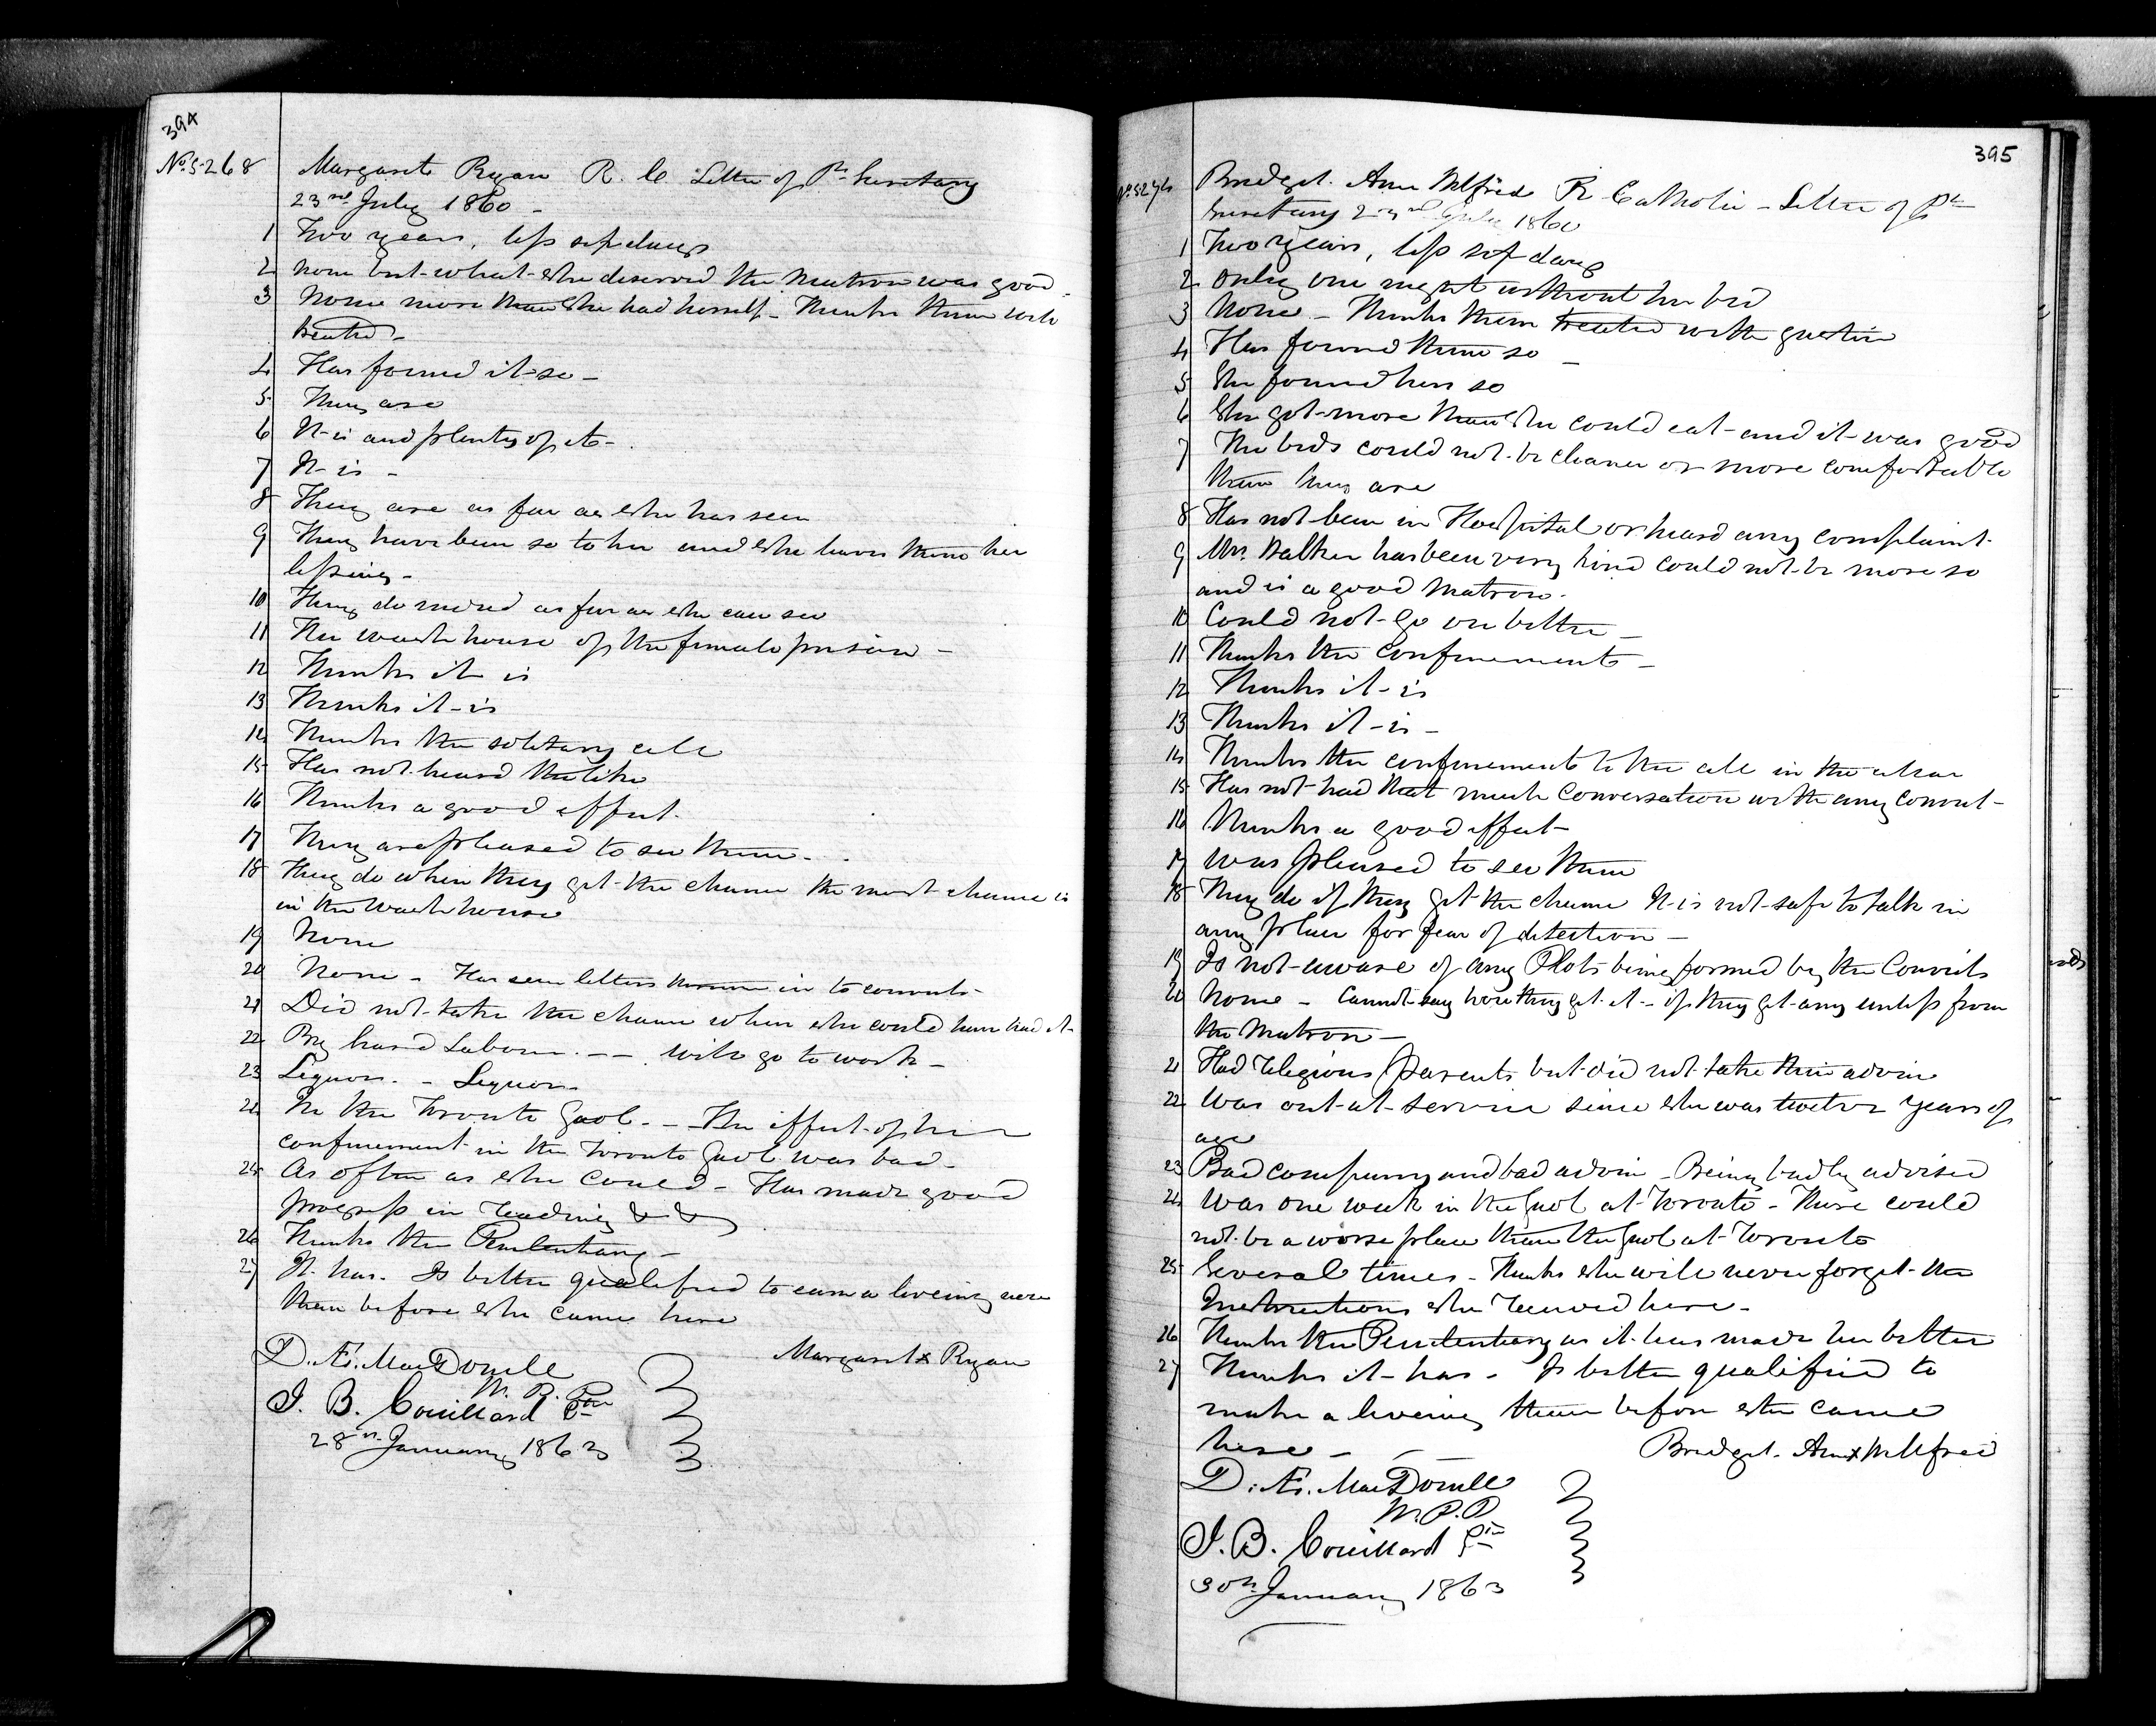 394
No 5268 Margaret Ryan R. C. Letter of Pl Secretary
23rd July 1860 -
1 Two years, less six days
2 None but what she deserved the Matron was good -
3 None more than she had herself - Thinks them well
treated -
4 Has found it so -
5 They are
6 It is and plenty of it -
7 It is -
8 They are as far as she has seen
9 They have been so to her and she leaves them her
blessing -
10 They do mind as far as she can see
11 The wash house of the female prison -
12 Thinks it is
13 Thinks it is
14 Thinks the solitary cell
15 Has not heard the like
16 Thinks a good effect.
17 They are pleased to see them -
18 They do when they get the chance the most chance is
in the Wash house
19 None
20 None - Has seen letters in to convicts -
21 Did not take the chance when she could have had it -
22 By hard Labour. - - Will go to work -
23 Liquor. - Liquor -
24 In the Toronto Gaol. - The effect of her
confinement in the Toronto Gaol was bad -
25 As often as she could - Has made good
progress in reading & &
26 Thinks the Penitentiary -
27 It has. Is better qualified to earn a liveing now
than before she came here
Margaret x Ryan
D. Æ. MacDonell
W. P. P.
J. B. Couillard
28th January 1863
395
Bridget Ann R Catholic - Letter of Pl
Secretary 23rd July 1860
1 Two years, less six days
2 Only one night without her bed
3 None - Thinks them treated with justice
4 Has found them so -
5 She found hers so
6 She got more than she could eat and it was good
7 The beds could not be cleaner or more comfortable
than they are
8 Has not been in Hospital or heard any complaint -
9 Mrs. Walker has been very kind could not be more so
and is a good Matron -
10 Could not go on better -
11 Thinks the Confinement -
12 Thinks it is
13 Thinks it is -
14 Thinks the confinement to the cell in the
15 Has not had that much Conversation with any convict -
16 Thinks a good effect -
17 Was pleased to see them
18 They do if they get the chance It is not safe to talk in
any place for fear of detection -
19 Is not aware of any Plots being formed by the Convicts
20 None - Cannot say how they get it - if they get any unless from
the Matron -
21 Had religious Parents but did not take their advice
22 Was out at service since she was twelve years of
age
23 Bad company and bad advice - Being badly advised
24 Was one week in the Gaol at Toronto - There could
not be a worse place than the Gaol at Toronto
25 Several times - Thinks she will never forget the
Instructions she received here -
26 Thinks the Penitentiary as it has made her better
27 Thinks it has - Is better qualified to
make a liveing than before she came
here - - Bridget Ann x
D. Æ. MacDonell
W. P. P.
J. B. Couillard
30th January 1863